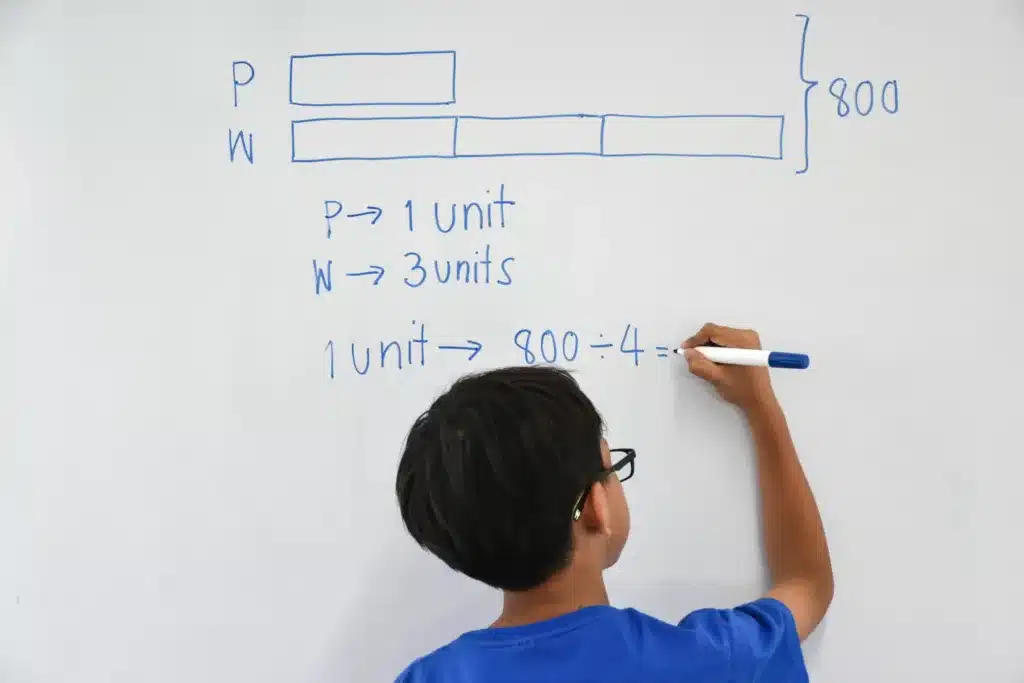 P
800
W
P → 1 unit
W → 3 units
1 unit → 800 ÷ 4 =